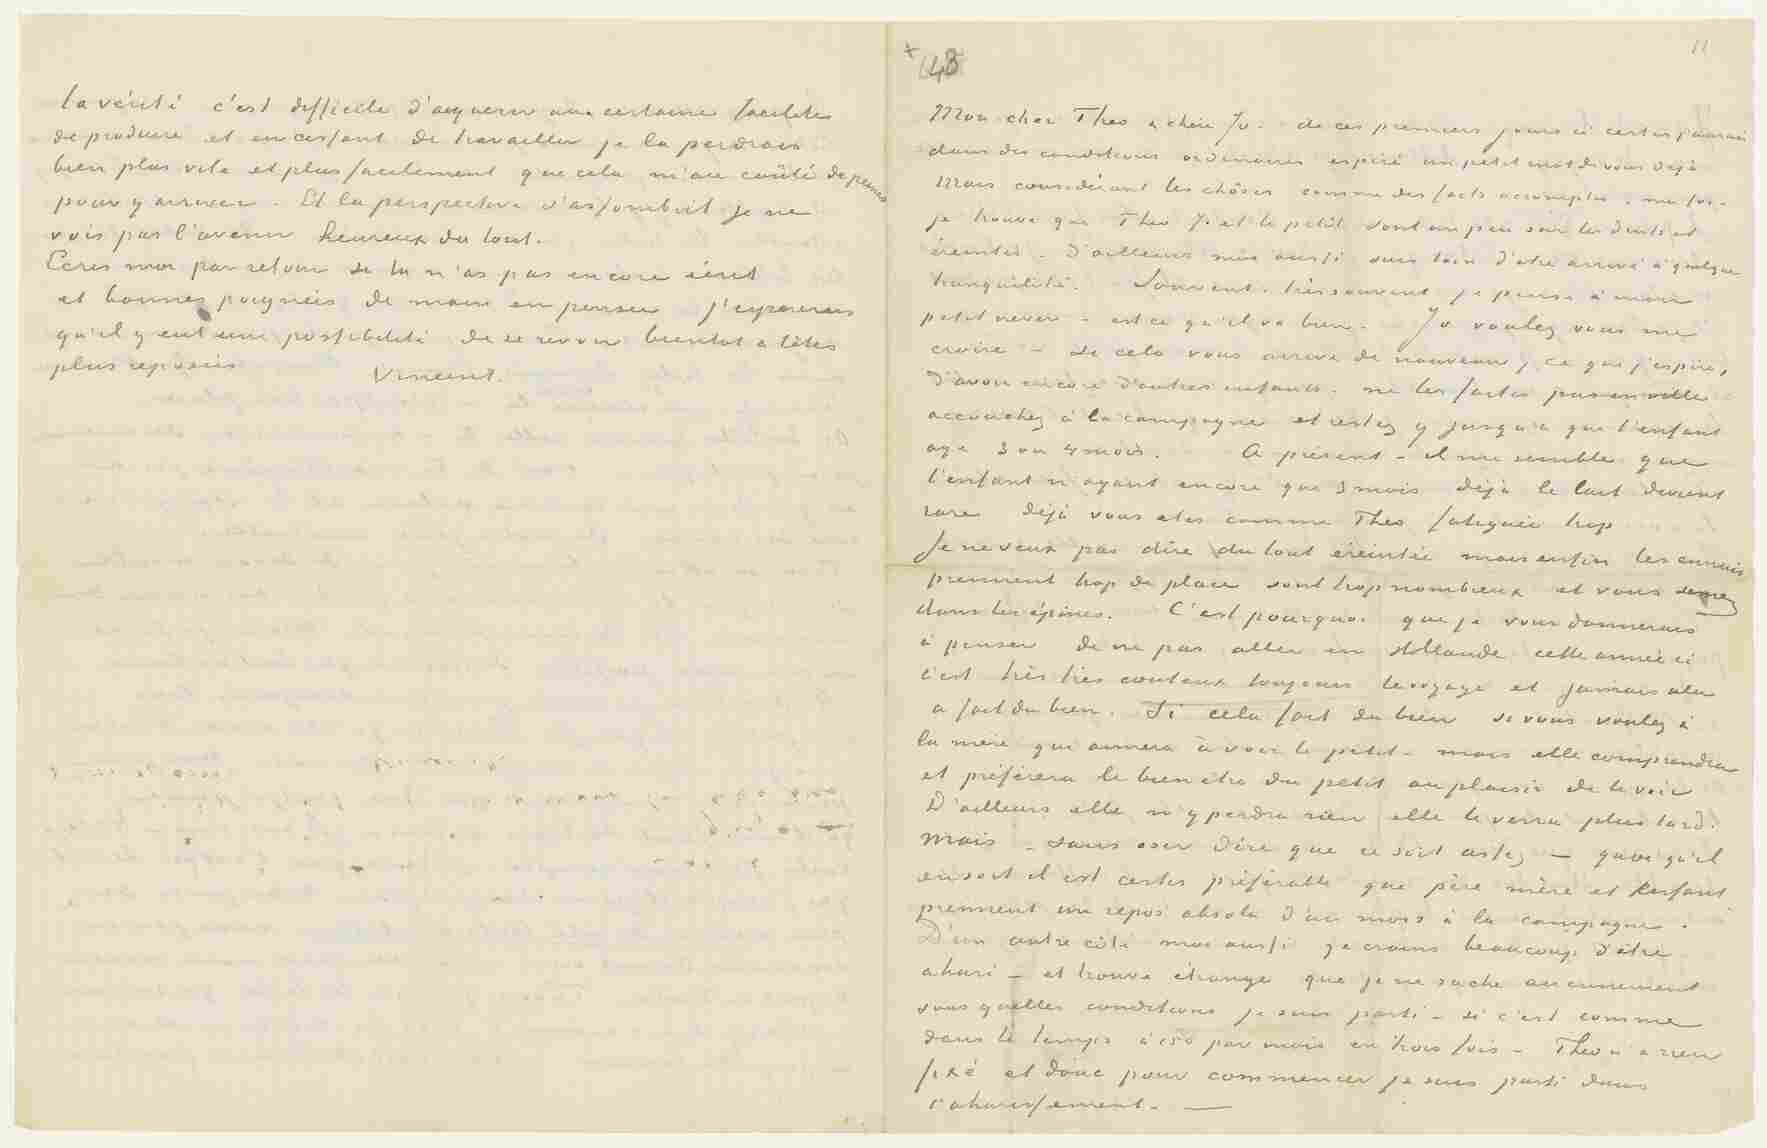 la vérité c'est difficile d'acquérir une certaine facilité
de produire et en cessant de travailler je la perdrais
bien plus vite et plus facilement que cela m'aie coûté de peines
pour y arriver. Et la perspective s'assombrit je ne
vois pas l'avenir heureux du tout.
Ecris moi par retour si tu n'as pas encore écrit
et bonnes poignées de main en pensée j'espererais
qu'il y eut une possibilité de se revoir bientot a têtes
plus reposées
Vincent.
48
11
Mon cher Theo & chère Jo. de ces premiers jours ci certes j'aurais
dans des conditions ordinaires espéré un petit mot de vous déjà
Mais considérant les chôses comme des faits accomplis. ma foi.
je trouve que Theo Jo et le petit sont un peu sur les dents et
éreintés. d'ailleurs moi aussi suis loin d'etre arrivé à quelque
tranquilité. Souvent, très souvent je pense à mon
petit neveu – est ce qu'il va bien. Jo voulez vous me
croire – si cela vous arrive de nouveau, ce que j'espère,
d'avoir encore d'autres enfants. ne les faites pas en ville
accouchez à la campagne et restez y jusqu'à que l'enfant
aye 3 ou 4 mois. A présent – il me semble que
l'enfant n'ayant encore que 3 mois déjà le lait devient
rare déjà vous etes comme Theo fatiguée trop
Je ne veux pas dire du tout éreintée mais enfin les ennuis
prennent trop de place sont trop nombreux et vous semez
dans les épines. C'est pourquoi que je vous donnerais
à penser de ne pas aller en Hollande cette année ci
c'est très très couteux toujours le voyage et jamais cela
a fait du bien. Si cela fait du bien si vous voulez à
la mère qui aimera à voir le petit – mais elle comprendra
et préférera le bien être du petit au plaisir de le voir
D'ailleurs elle n'y perdra rien elle le verra plus tard.
Mais – sans oser dire que ce soit assez – quoi qu'il
en soit il est certes préférable que père mère et l'enfant
prennent un repos absolu d'un mois à la campagne.
D'un autre côté moi aussi je crains beaucoup d'être
ahuri – et trouve étrange que je ne sache aucunement
sous quelles conditions je suis parti – si c'est comme
dans le temps à 150 par mois en trois fois – Theo n'a rien
fixé et donc pour commencer je suis parti dans
l'ahurissement. —